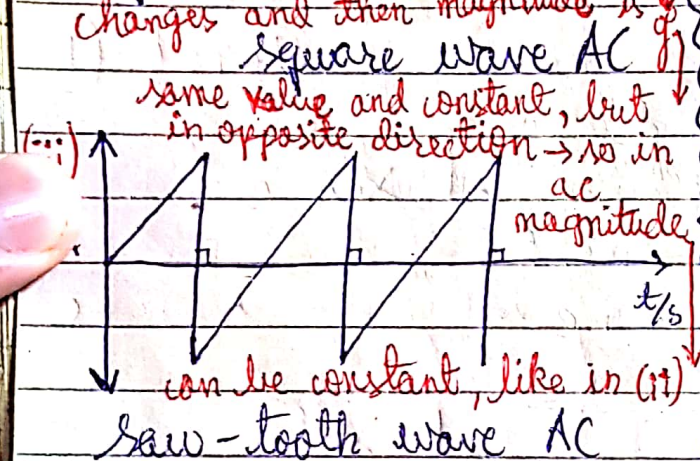 changes and then magnitude is
square wave AC
same value and constant, but
in opposite direction → so in
(iii)
ac
magnitude
t/s
can be constant, like in (ii)
Saw-tooth wave AC